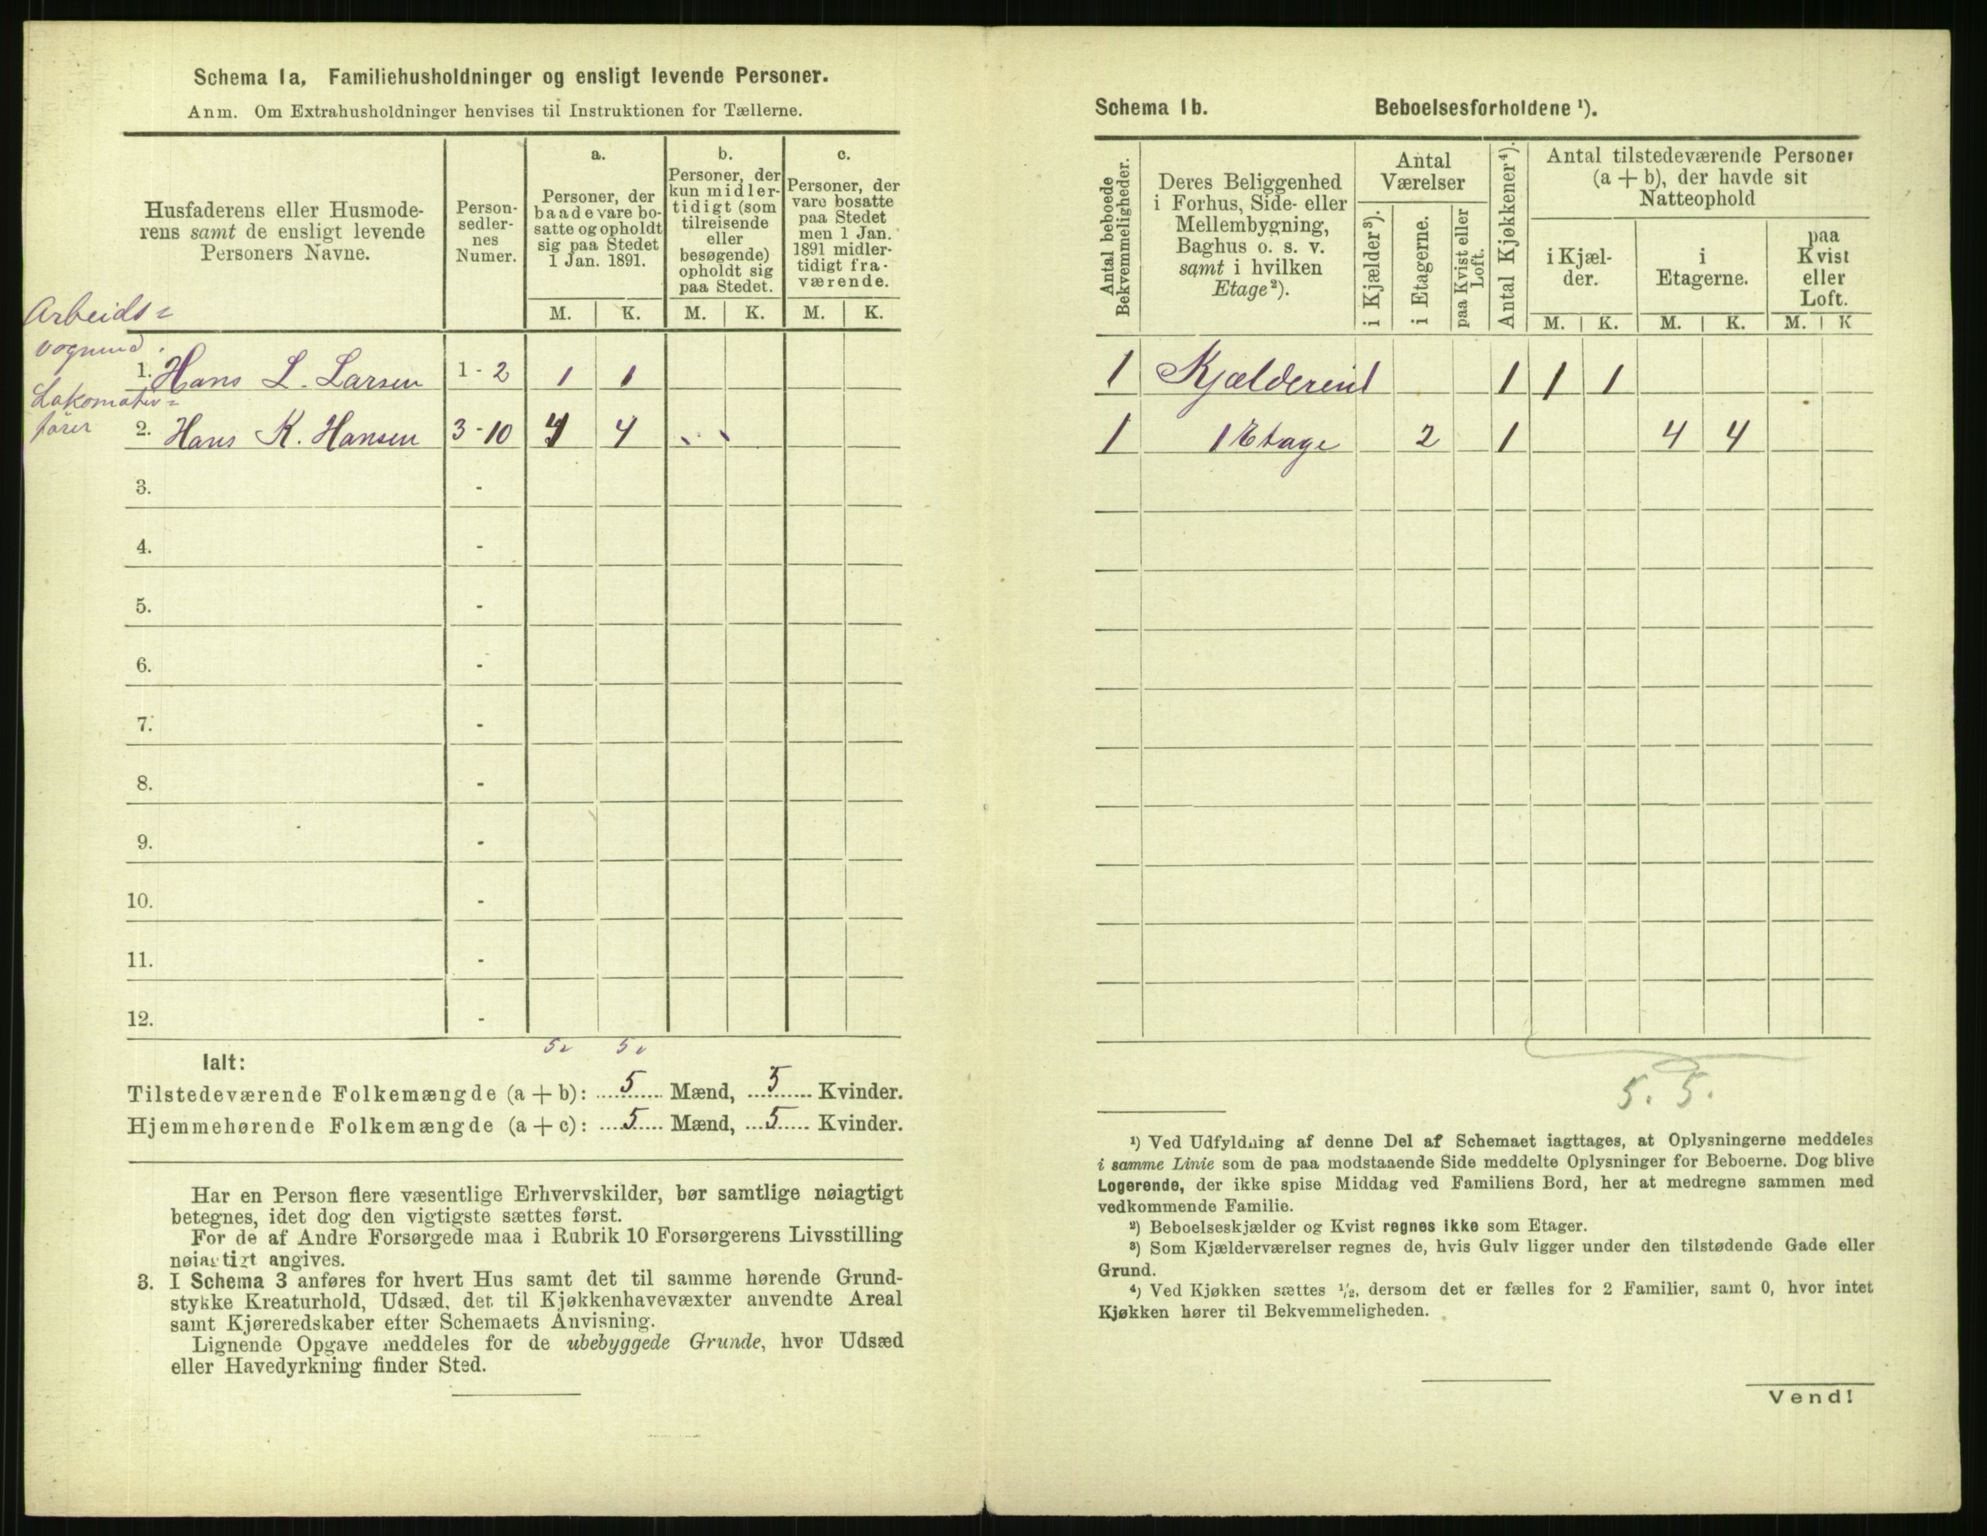 Schema 1a, Familiehusholdninger og ensligt levende Personer.
Anm. Om Extrahusholdninger henvises til Instruktionen for Tællerne.
Husfaderens eller Husmode-
rens samt de ensligt levende
Personers Navne.
Person-
sedler-
nes
Numer.
a.
Personer, der
baade vare bo-
satte og opholdt
sig paa Stedet
1 Jan. 1891.
b.
Personer, der
kun midler-
tidigt (som
tilreisende
eller
besøgende)
opholdt sig
paa Stedet.
c.
Personer, der
vare bosatte
paa Stedet
men 1 Jan.
1891 midler-
tidigt fra-
værende.
M. K. M. K. M. K.
Arbeids=
vognmd.
1. Hans L. Larsen 1 - 2 1 1
Lokomotiv=
fører
2. Hans K. Hansen 3 - 10 4 4
3. -
4. -
5. -
6. -
7. -
8. -
9. -
10. -
11. -
12. -
5 5
Ialt:
Tilstedeværende Folkemængde (a + b): 5 Mænd, 5 Kvinder.
Hjemmehørende Folkemængde (a + c): 5 Mænd, 5 Kvinder.
Har en Person flere væsentlige Erhvervskilder, bør samtlige nøiagtigt
betegnes, idet dog den vigtigste sættes først.
For de af Andre Forsørgede maa i Rubrik 10 Forsørgerens Livsstilling
nøiagtigt angives.
3. I Schema 3 anføres for hvert Hus samt det til samme hørende Grund-
stykke Kreaturhold, Udsæd, det til Kjøkkenhavevæxter anvendte Areal
samt Kjøreredskaber efter Schemaets Anvisning.
Lignende Opgave meddeles for de ubebyggede Grunde, hvor Udsæd
eller Havedyrkning finder Sted.
Schema 1b. Beboelsesforholdene ¹).
Antal beboede
Bekvemmeligheder.
Deres Beliggenhed
i Forhus, Side- eller
Mellembygning,
Baghus o. s. v.
samt i hvilken
Etage²).
Antal
Værelser
i Kjælder³).
i Etagerne.
paa Kvist eller
Loft.
Antal Kjøkkener⁴).
Antal tilstedeværende Personer
(a + b), der havde sit
Natteophold
i Kjæl-
der.
i
Etagerne.
paa
Kvist
eller
Loft.
M. K. M. K. M. K
1 Kjælderen 1 1 1 1
1 1 Etage 2 1 4 4
5. 5.
¹) Ved Udfyldning af denne Del af Schemaet iagttages, at Oplysningerne meddeles
i samme Linie som de paa modstaaende Side meddelte Oplysninger for Beboerne. Dog blive
Logerende, der ikke spise Middag ved Familiens Bord, her at medregne sammen med
vedkommende Familie.
²) Beboelseskjælder og Kvist regnes ikke som Etager.
³) Som Kjælderværelser regnes de, hvis Gulv ligger under den tilstødende Gade eller
Grund.
⁴) Ved Kjøkken sættes ½, dersom det er fælles for 2 Familier, samt 0, hvor intet
Kjøkken hører til Bekvemmeligheden.
Vend!